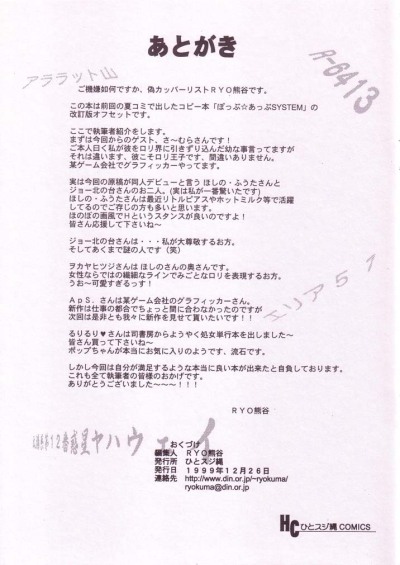 あとがき
アララット山
R-6413
ご機嫌如何ですか、偽カッパーリストRYO熊谷です。
この本は前回の夏コミで出したコピー本「ぽっぷ☆あっぷSYSTEM」の
改訂版オフセットです。
ここで執筆者紹介をします。
まずは今回からのゲスト、さ～むらさんです！
ご本人曰く私が彼をロリ界に引きずり込んだ幼な事言ってますが
それは違います、彼こそロリ王子です、間違いありません。
某ゲーム会社でグラフィッカーやってます。
実は今回の原稿が同人デビューと言う ほしの・ふうたさんと
ジョー北の台さんのお二人。(実は私が一番驚いたです)
ほしの・ふうたさんは最近リトルピアスやホットミルク等で活躍
してるのでご存じの方も多いと思います。
ほのぼの画風でＨというスタンスが良いのですよ！
皆さん応援して下さいね～
ジョー北の台さんは・・・私が大尊敬するお方。
そしてあくまで謎の人です（笑）
エリア５１
ヲカヤヒツジさんは ほしのさんの奥さんです。
女性ならではの繊細なラインでみごとなロリを表現するお方。
うお～可愛すぎるっす！
ＡｐＳ．さんは某ゲーム会社のグラフィッカーさん。
新作は仕事の都合でちょっと間に合わなかったのですが
次回は是非とも我々に新作を見せて貰いたいです！！
るりるり♥さんは司書房からようやく処女単行本を出しました～
皆さん買って下さいね～
ポップちゃんが本当にお気に入りのようです、流石です。
しかし今回は自分が満足するような本当に良い本が出来たと自負しております。
これも全て執筆者の皆様のおかげです。
ありがとうございました～～～！！！
ＲＹＯ熊谷
12番惑星ヤハウェイ
おくづけ
編集人 ＲＹＯ熊谷
発行所 ひとスジ縄
発行日 １９９９年１２月２６日
連絡先 http://www.din.or.jp/~ryokuma/
ryokuma@din.or.jp
HC ひとスジ縄 COMICS